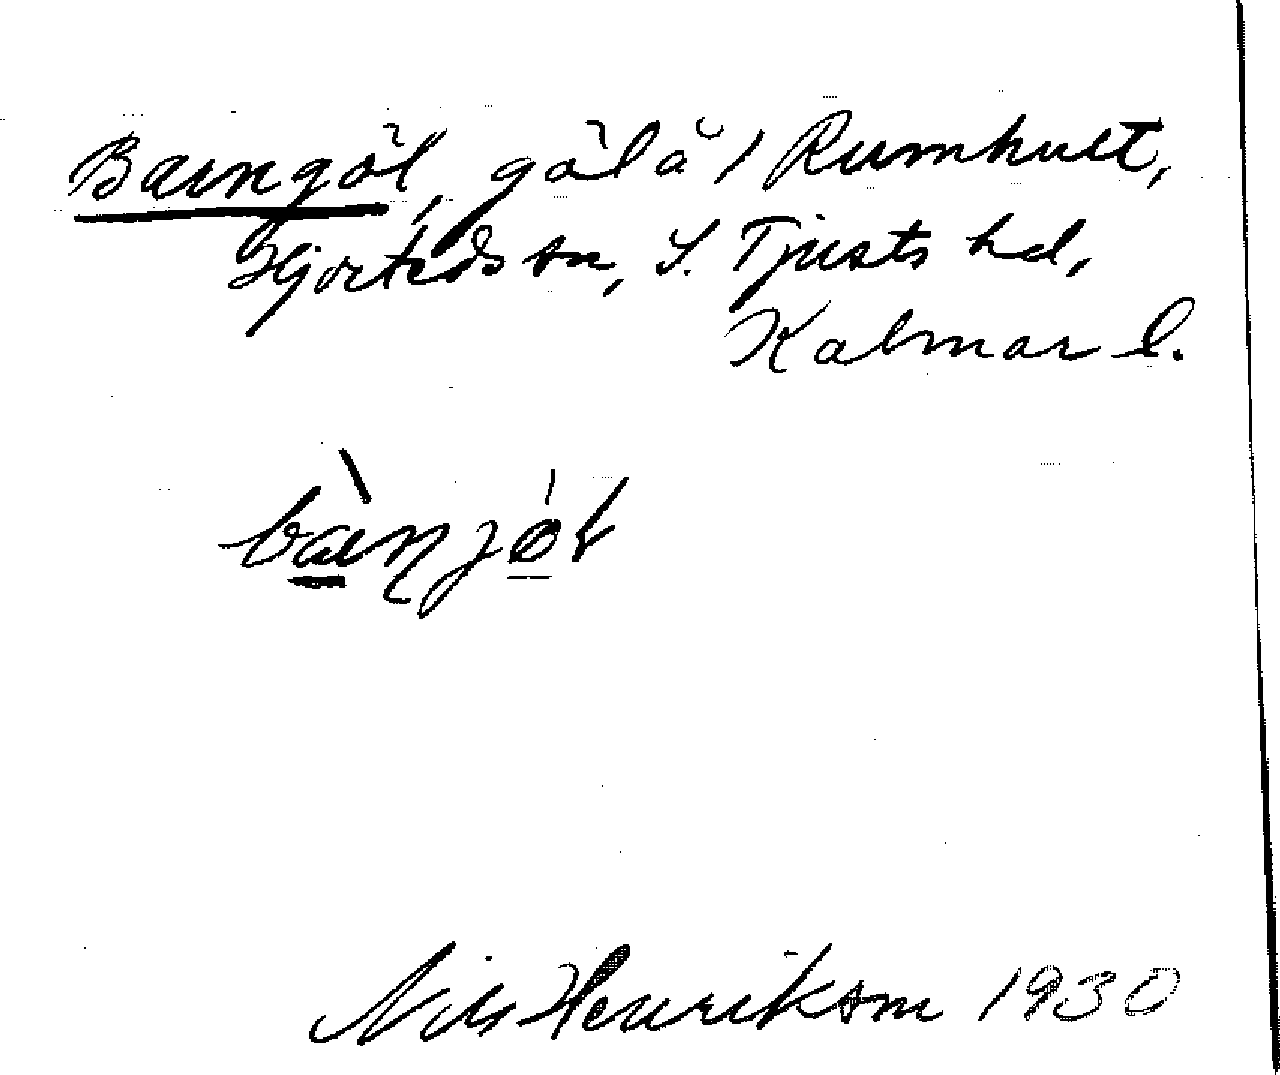 Barngöl, göl å 1 Rumhult,
Hjorteds sn, S. Tjusts hd,
Kalmar l.
Nils Henrikson 1930